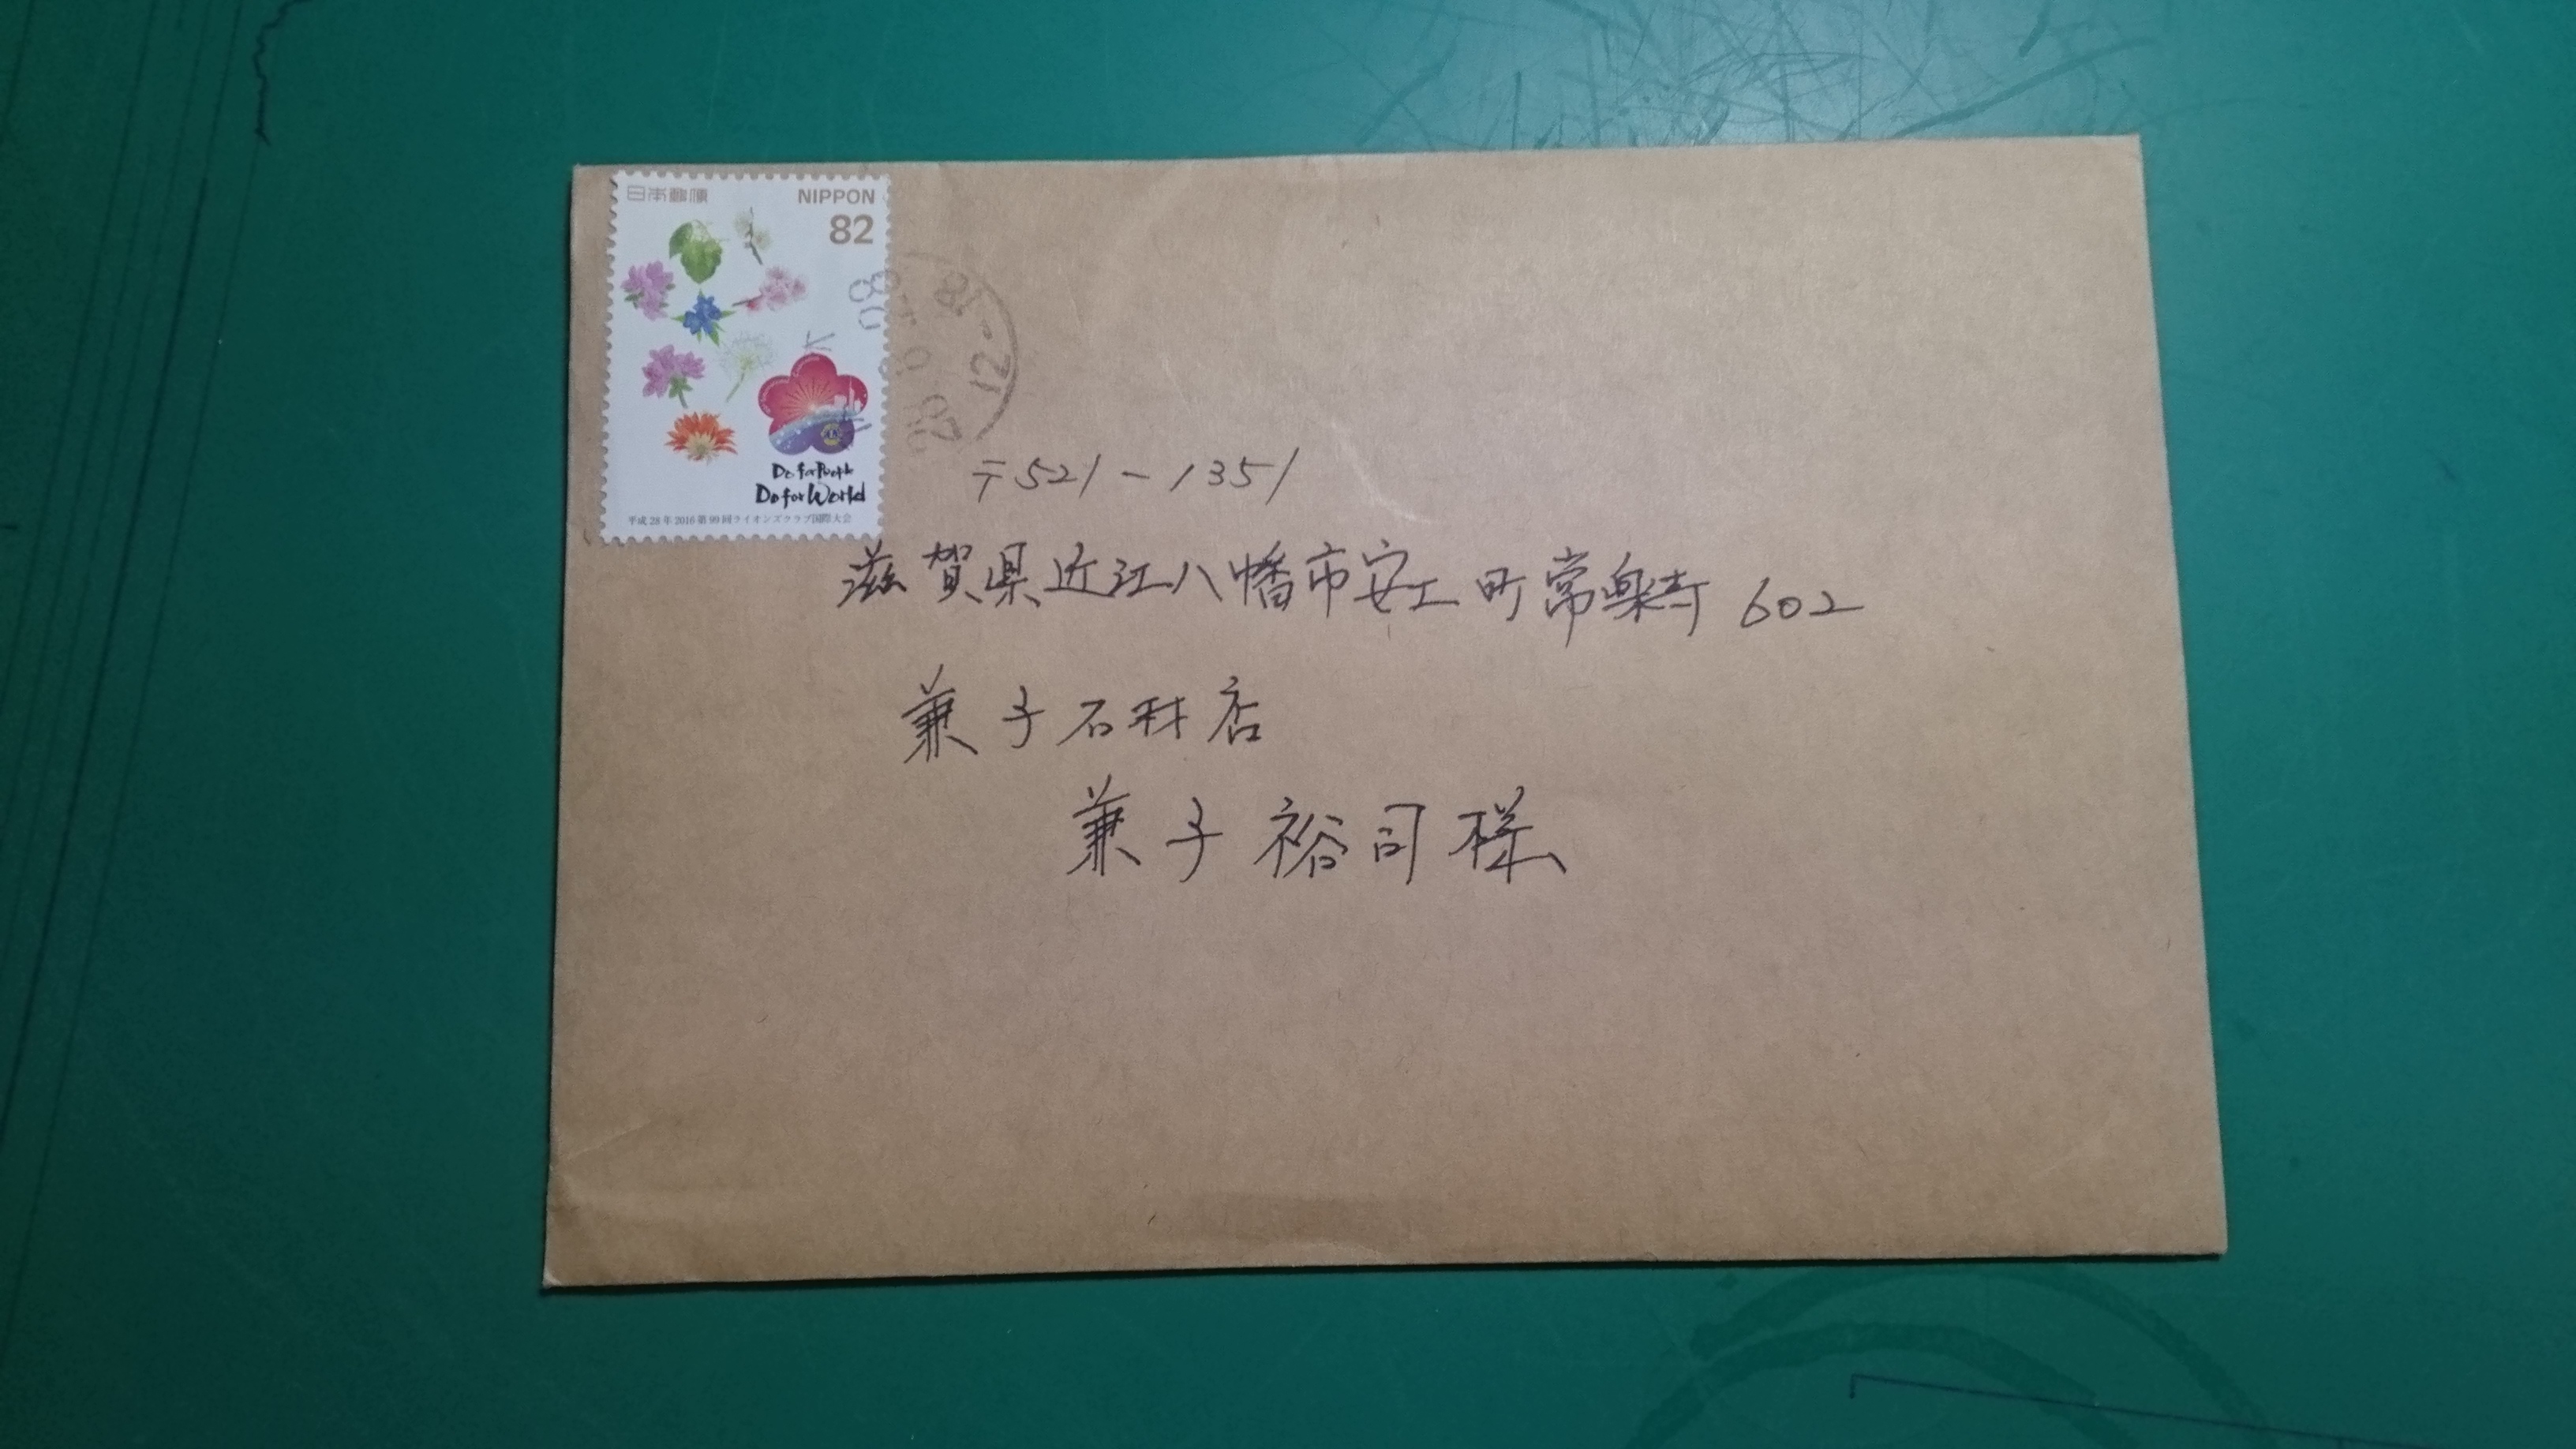 日本郵便 NIPPON
82
Do for People
Do for World
平成28年2016第99回ライオンズクラブ国際大会
12-18
〒521-1351
滋賀県近江八幡市安土町常楽寺 602
兼子石材店
兼子裕司様